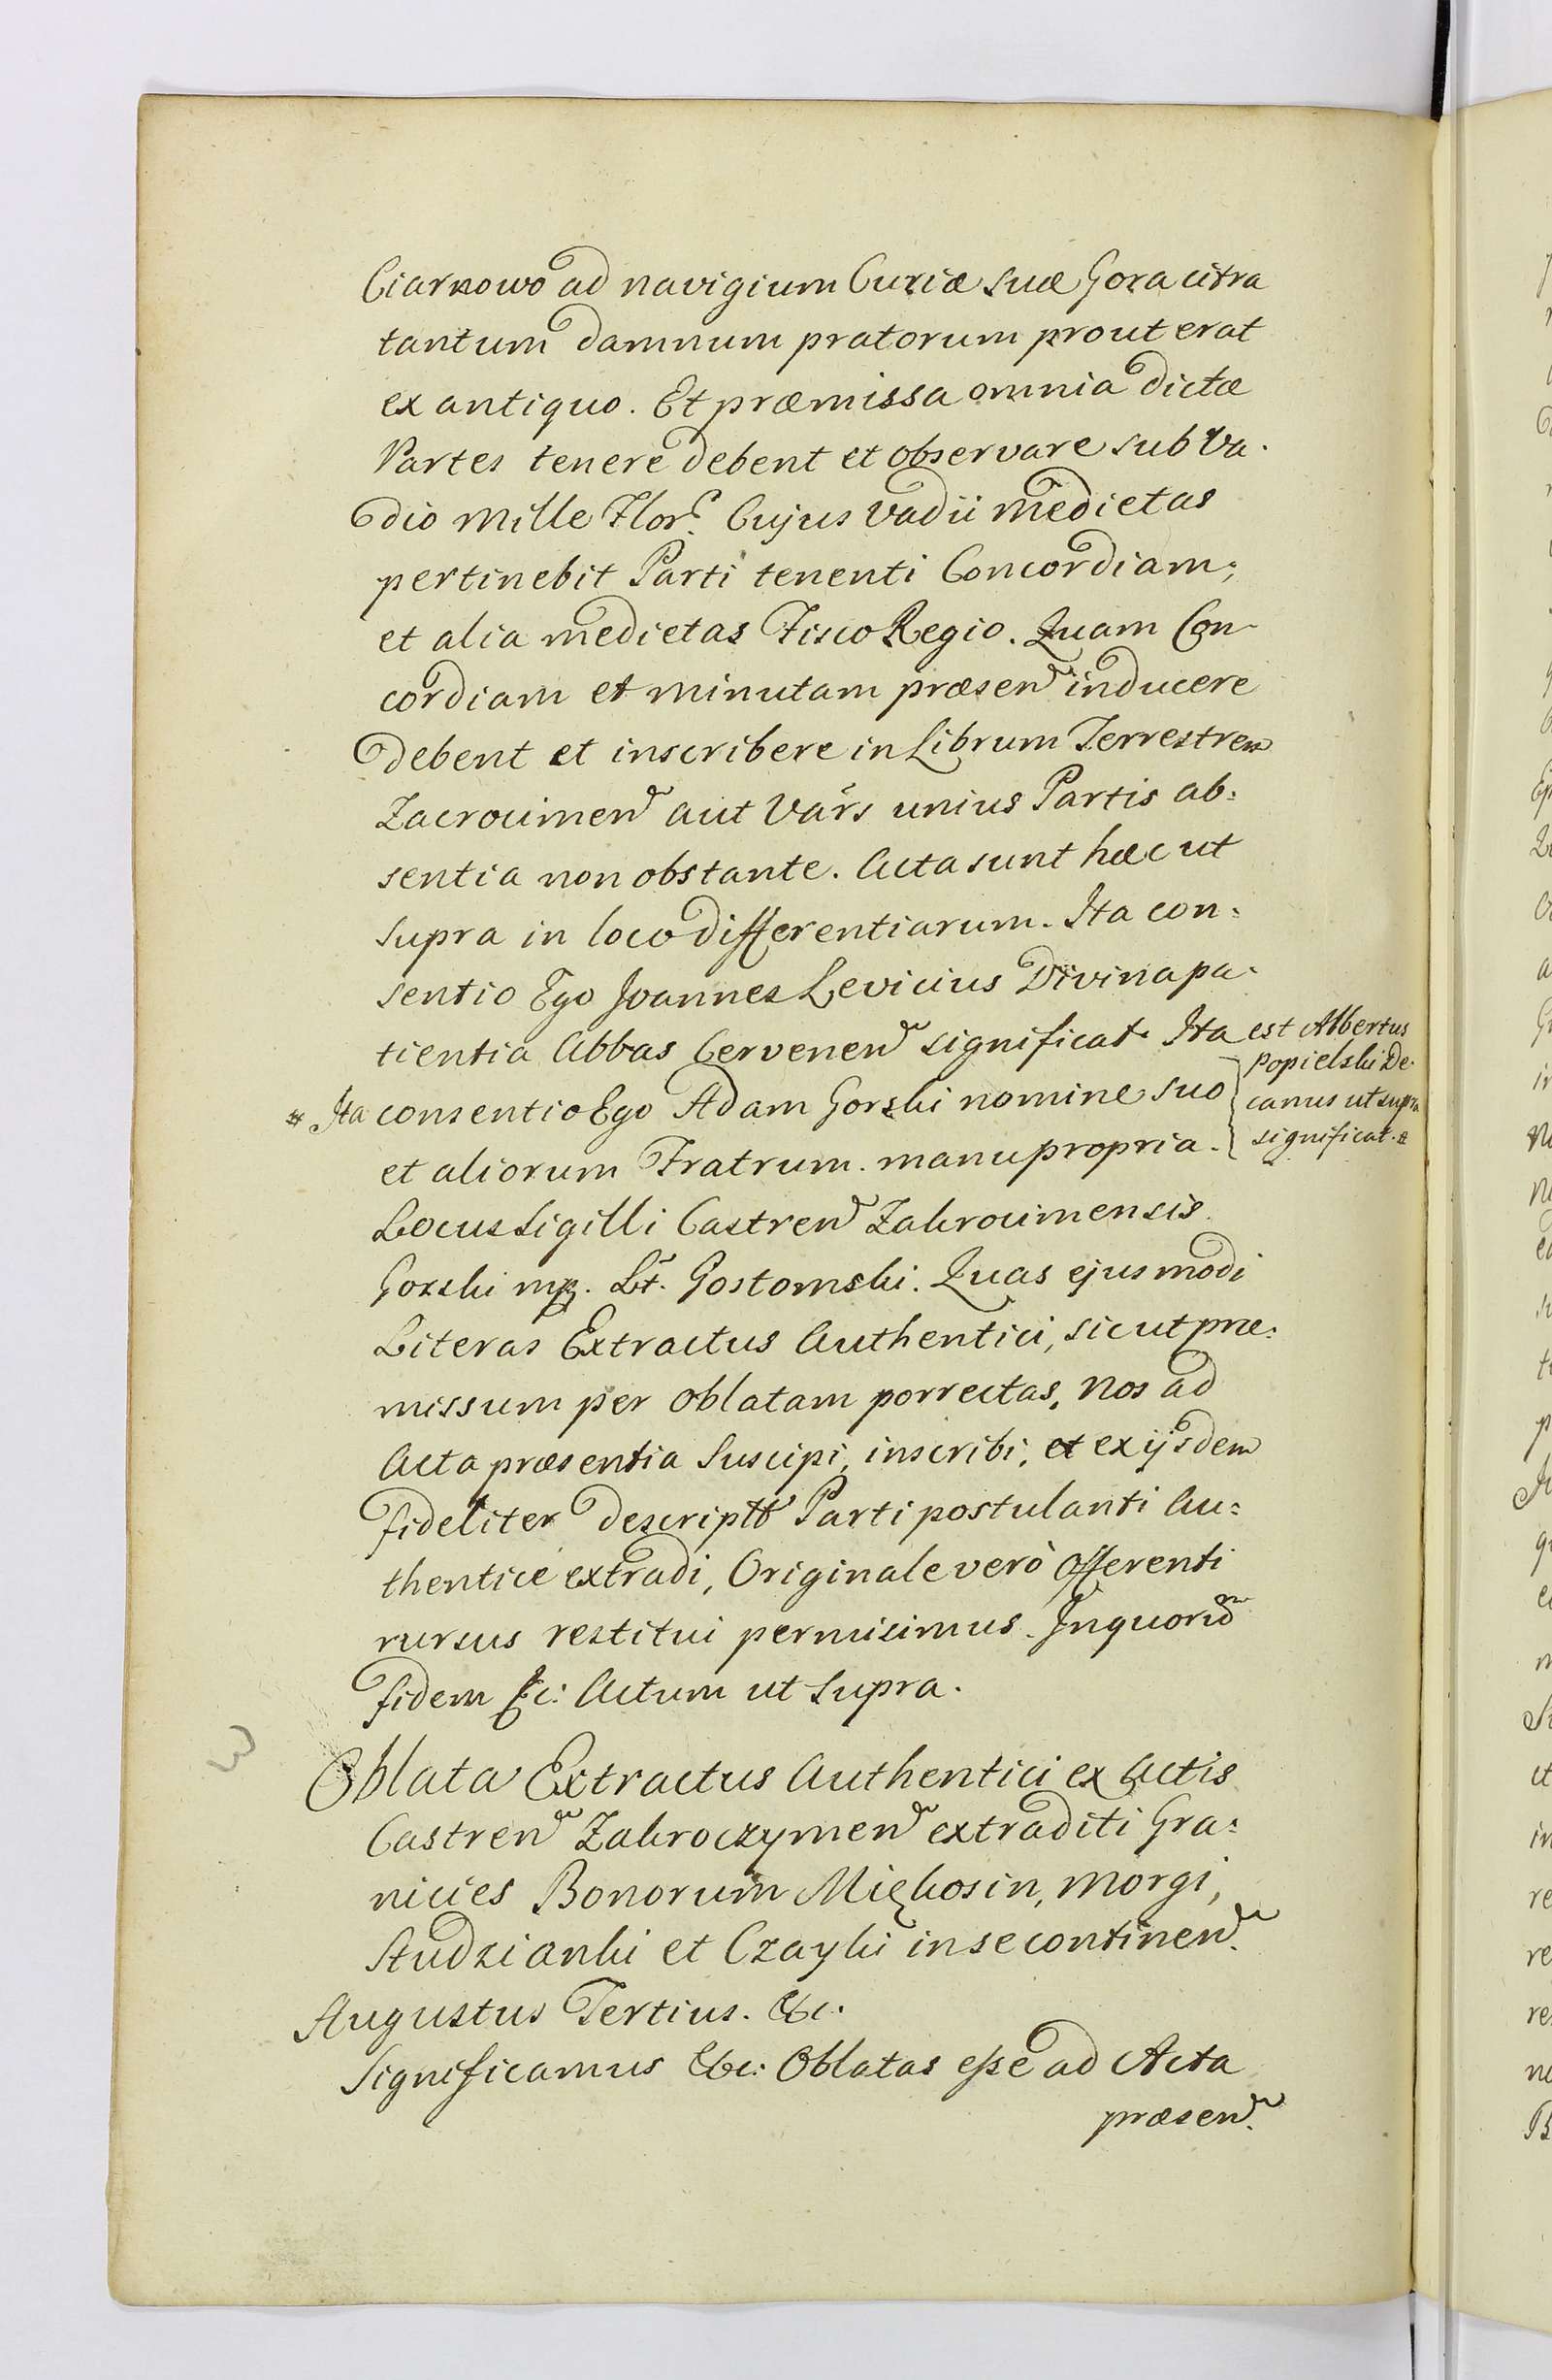 Ciarnowo ad navigium Curiæ suæ Gora citra
tantum damnum pratorum prout erat
ex antiquo. Et præmissa omnia dictæ
Partes tenere debent et observare sub Va-
dio Mille Flor. Cujus Vadii medietas
pertinebit Parti tenenti Concordiam;
et alia medietas Fisco Regio. Quam Con-
cordiam et minutam præsen inducere
debent et inscribere in Librum Terrestrem
Zacrocimen aut Vars unius Partis ab:
sentia non obstante. Acta sunt hæc ut
supra in loco differentiarum. Ita con:
sentio Ego Joannes Levicius Divina pa-
tientia Abbas Cervenen significat. Ita est Albertus
Popielski De-
canus ut supra
significat. #
# Ita consentio Ego Adam Gorski nomine suo
et aliorum Fratrum. manu propria.
Locus Sigilli Castren Zakrocimensis
Gorski mp. Lt. Gostomski. Quas ejusmodi
Literas Extractus Authentici, sicut præ:
missum per oblatam porrectas, Nos ad
Acta præsentia Suscipi, inscribi, et ex ijsdem
fideliter descriptt Parti postulanti Au:
thentice extradi, Originale verò Offerenti
rursus restitui permisimus. In quorum
fidem &c: Actum ut supra.
3
Oblata Extractus Authentici ex Actis
Castren Zakroczymen extraditi Gra:
nicies Bonorum Miękosin, Morgi,
Studzianki et Czayki in se continen.
Augustus Tertius. &c.
Significamus &c: Oblatas esse ad Acta
præsen.